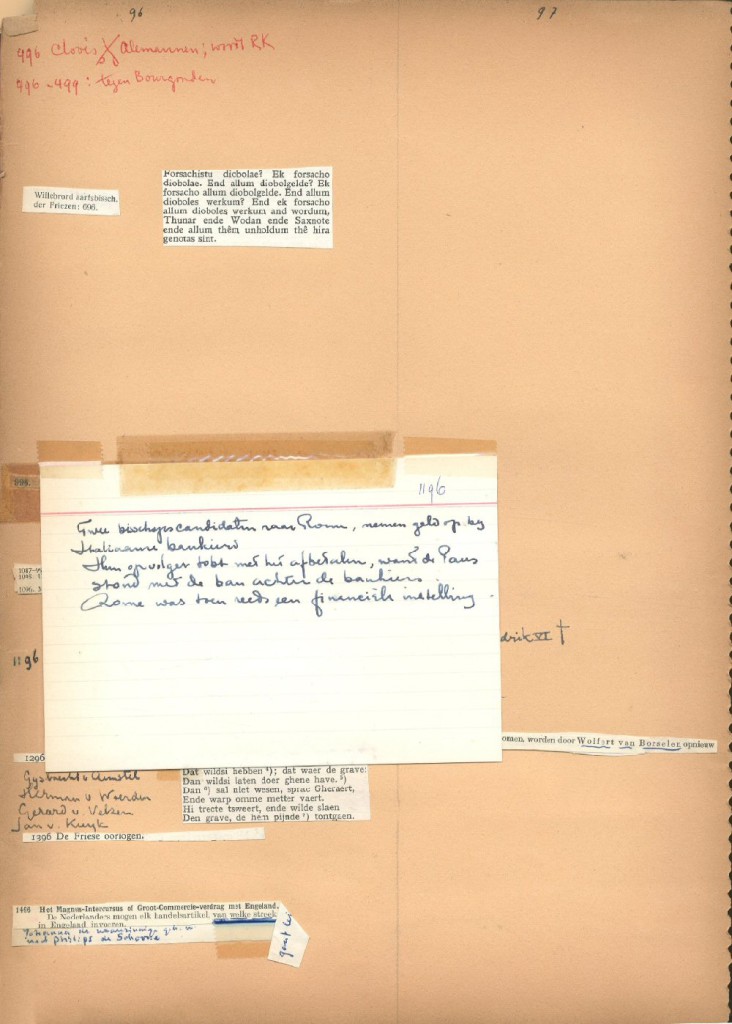 96
97
496 Clovis X Alemannen; wordt RK
496-499: tegen Bourgonden
Willebrord aartsbissch.
der Friezen: 696.
Forsachistu diobolae? Ek forsacho
diobolae. End allum diobolgelde? Ek
forsacho allum diobolgelde. End allum
dioboles werkum? End ek forsacho
allum dioboles werkum and wordum,
Thunar ende Wodan ende Saxnote
ende allum thêm unholdum thê hira
genotas sint.
996.
1196
Twee bisschopscandidaten naar Rome, nemen geld op bij
Italiaanse bankiers
Hun opvolger tobt met het afbetalen, want de Paus
stond met de ban achter de bankiers.
Rome was toen reeds een financiële instelling.
1096.
1196
drik VI †
omen, worden door Wolfert van Borselen opnieuw
1296
Gysbrecht v Amstel
Herman v Woerden
Gerard v. Velzen
Jan v. Kuyk
Dat wildsi hebben ⁴); dat waer de grave:
Dan wildsi laten doer ghene have. ⁵)
Dan ⁶) sal niet wesen, sprac Gheraert,
Ende warp omme metter vaert.
Hi trecte tsweert, ende wilde slaen
Den grave, de hem pijnde ⁷) tontgaen.
1396 De Friese oorlogen.
1496 Het Magnus-Intercursus of Groot-Commercie-verdrag met Engeland.
De Nederlanders mogen elk handelsartikel, van welke streek
in Engeland invoeren.
Johanna de waanzinnige
Philips de Schoone